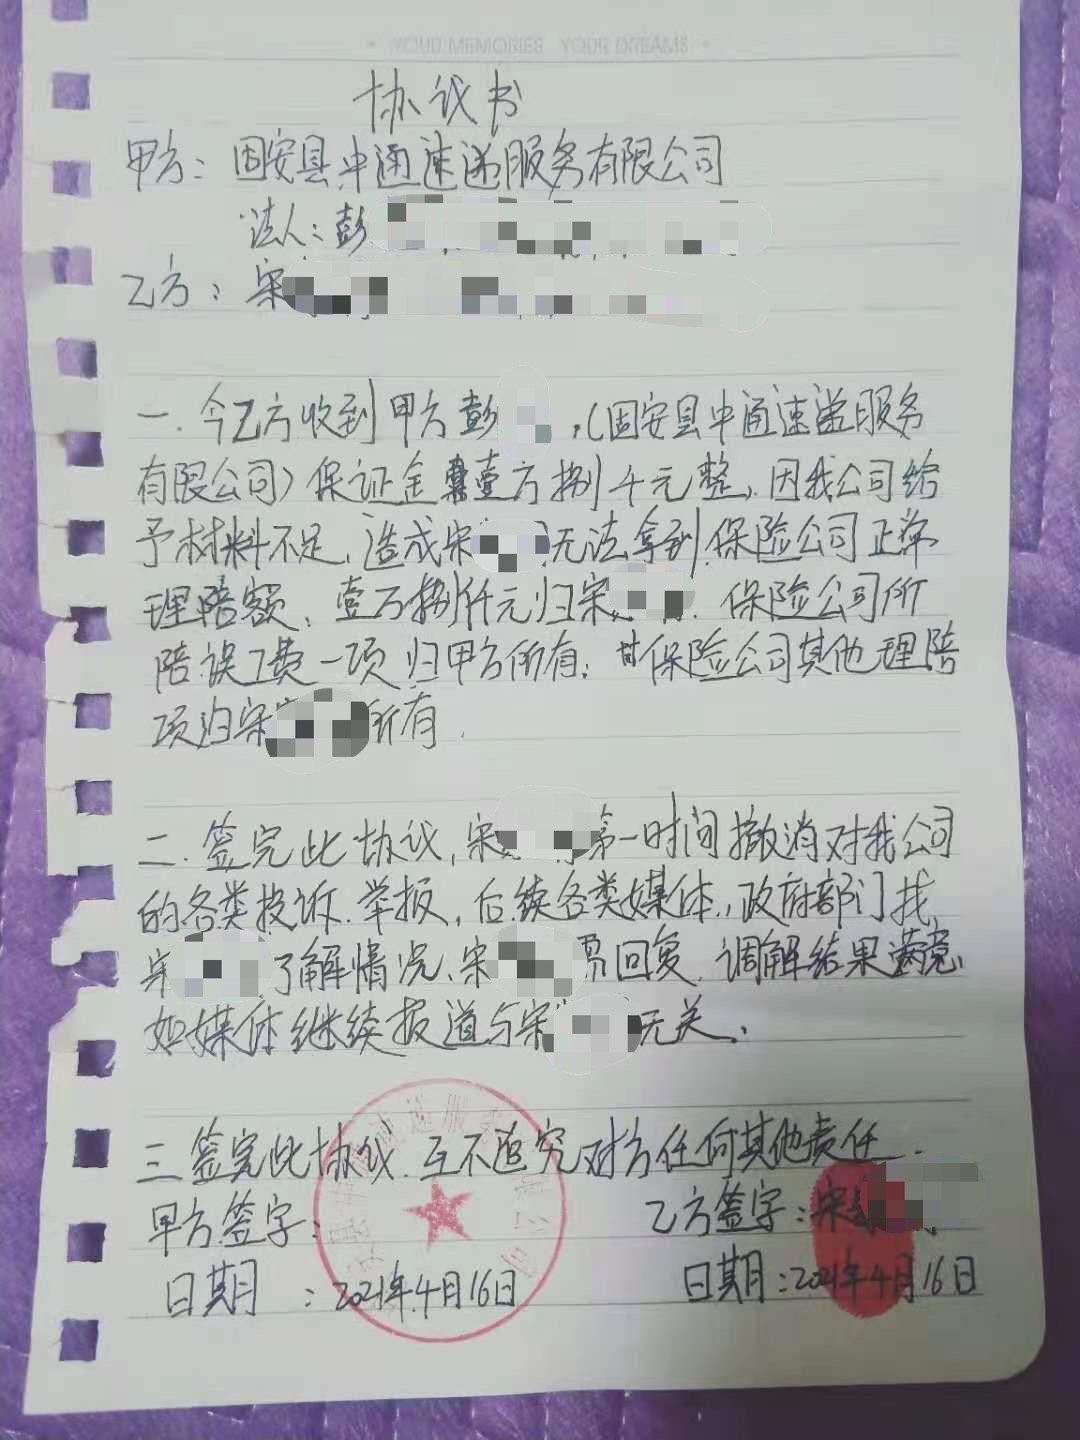 YOUR MEMORIES YOUR DREAMS
协议书
甲方：固安县中通速递服务有限公司
法人：彭
乙方：宋
一.今乙方收到甲方彭 ，（固安县中通速递服务
有限公司）保证金壹万捌千元整，因我公司给
予材料不足，造成宋 无法拿到保险公司正常
理陪额、壹万捌仟元归宋 ．保险公司所
陪误工费一项归甲方所有；保险公司其他理陪
项归宋 所有．
二．签完此协议，宋 第一时间撤消对我公司
的各类投诉．举报，后续各类媒体，政府部门找
宋 了解情况、宋 回复，调解结果满意、
如媒体继续报道与宋 无关．
三签完此协议．互不追究对方任何其他责任．
甲方签字： 乙方签字：宋
日期 ：2021年4月16日 日期：2021年4月16日